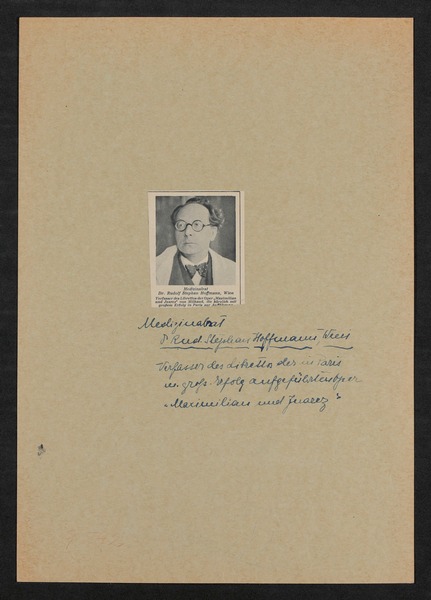 Medizinalrat
Dr. Rudolf Stephan Hoffmann, Wien
Verfasser des Librettos der Oper „Maximilian
und Juarez" von Milhaud, die kürzlich mit
großem Erfolg in Paris zur
Medizinalrat
Dr Rud Stephan Hoffmann, Wien
Verfasser des Librettos der in Paris
m. groß. Erfolg aufgeführten Oper
„Maximilian und Juarez"